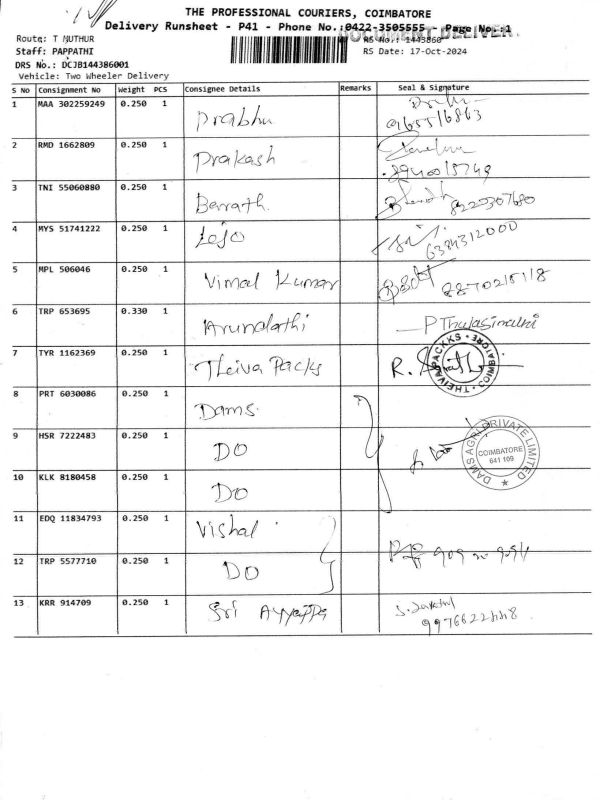 THE PROFESSIONAL COURIERS, COIMBATORE
Delivery Runsheet - P41 - Phone No.:0422-3505555 Page No.:1
DOCUMENT DELIVERY
Route: T MUTHUR
RS No.: 1443860
Staff: PAPPATHI
RS Date: 17-Oct-2024
DRS No.: DCJB144386001
Vehicle: Two Wheeler Delivery
S No Consignment No Weight PCS Consignee Details Remarks Seal & Signature
1 MAA 302259249 0.250 1 Prabhu
2 RMD 1662809 0.250 1 Prakash
3 TNI 55060880 0.250 1 Barrath 8220307680
4 MYS 51741222 0.250 1 Lejo 6384312000
5 MPL 506046 0.250 1 Vimal Kumar 8870215118
6 TRP 653695 0.330 1 Arundathi P Thulasimathi
7 TYR 1162369 0.250 1 Theiva Packs R.
THEIVA PACKKS COIMBATORE
8 PRT 6030086 0.250 1 Dams
9 HSR 7222483 0.250 1 DO
DAMS AGRI PRIVATE LIMITED
COIMBATORE
641 109
10 KLK 8180458 0.250 1 DO
11 EDQ 11834793 0.250 1 Vishal
12 TRP 5577710 0.250 1 DO
13 KRR 914709 0.250 1 Sri Ayyappa